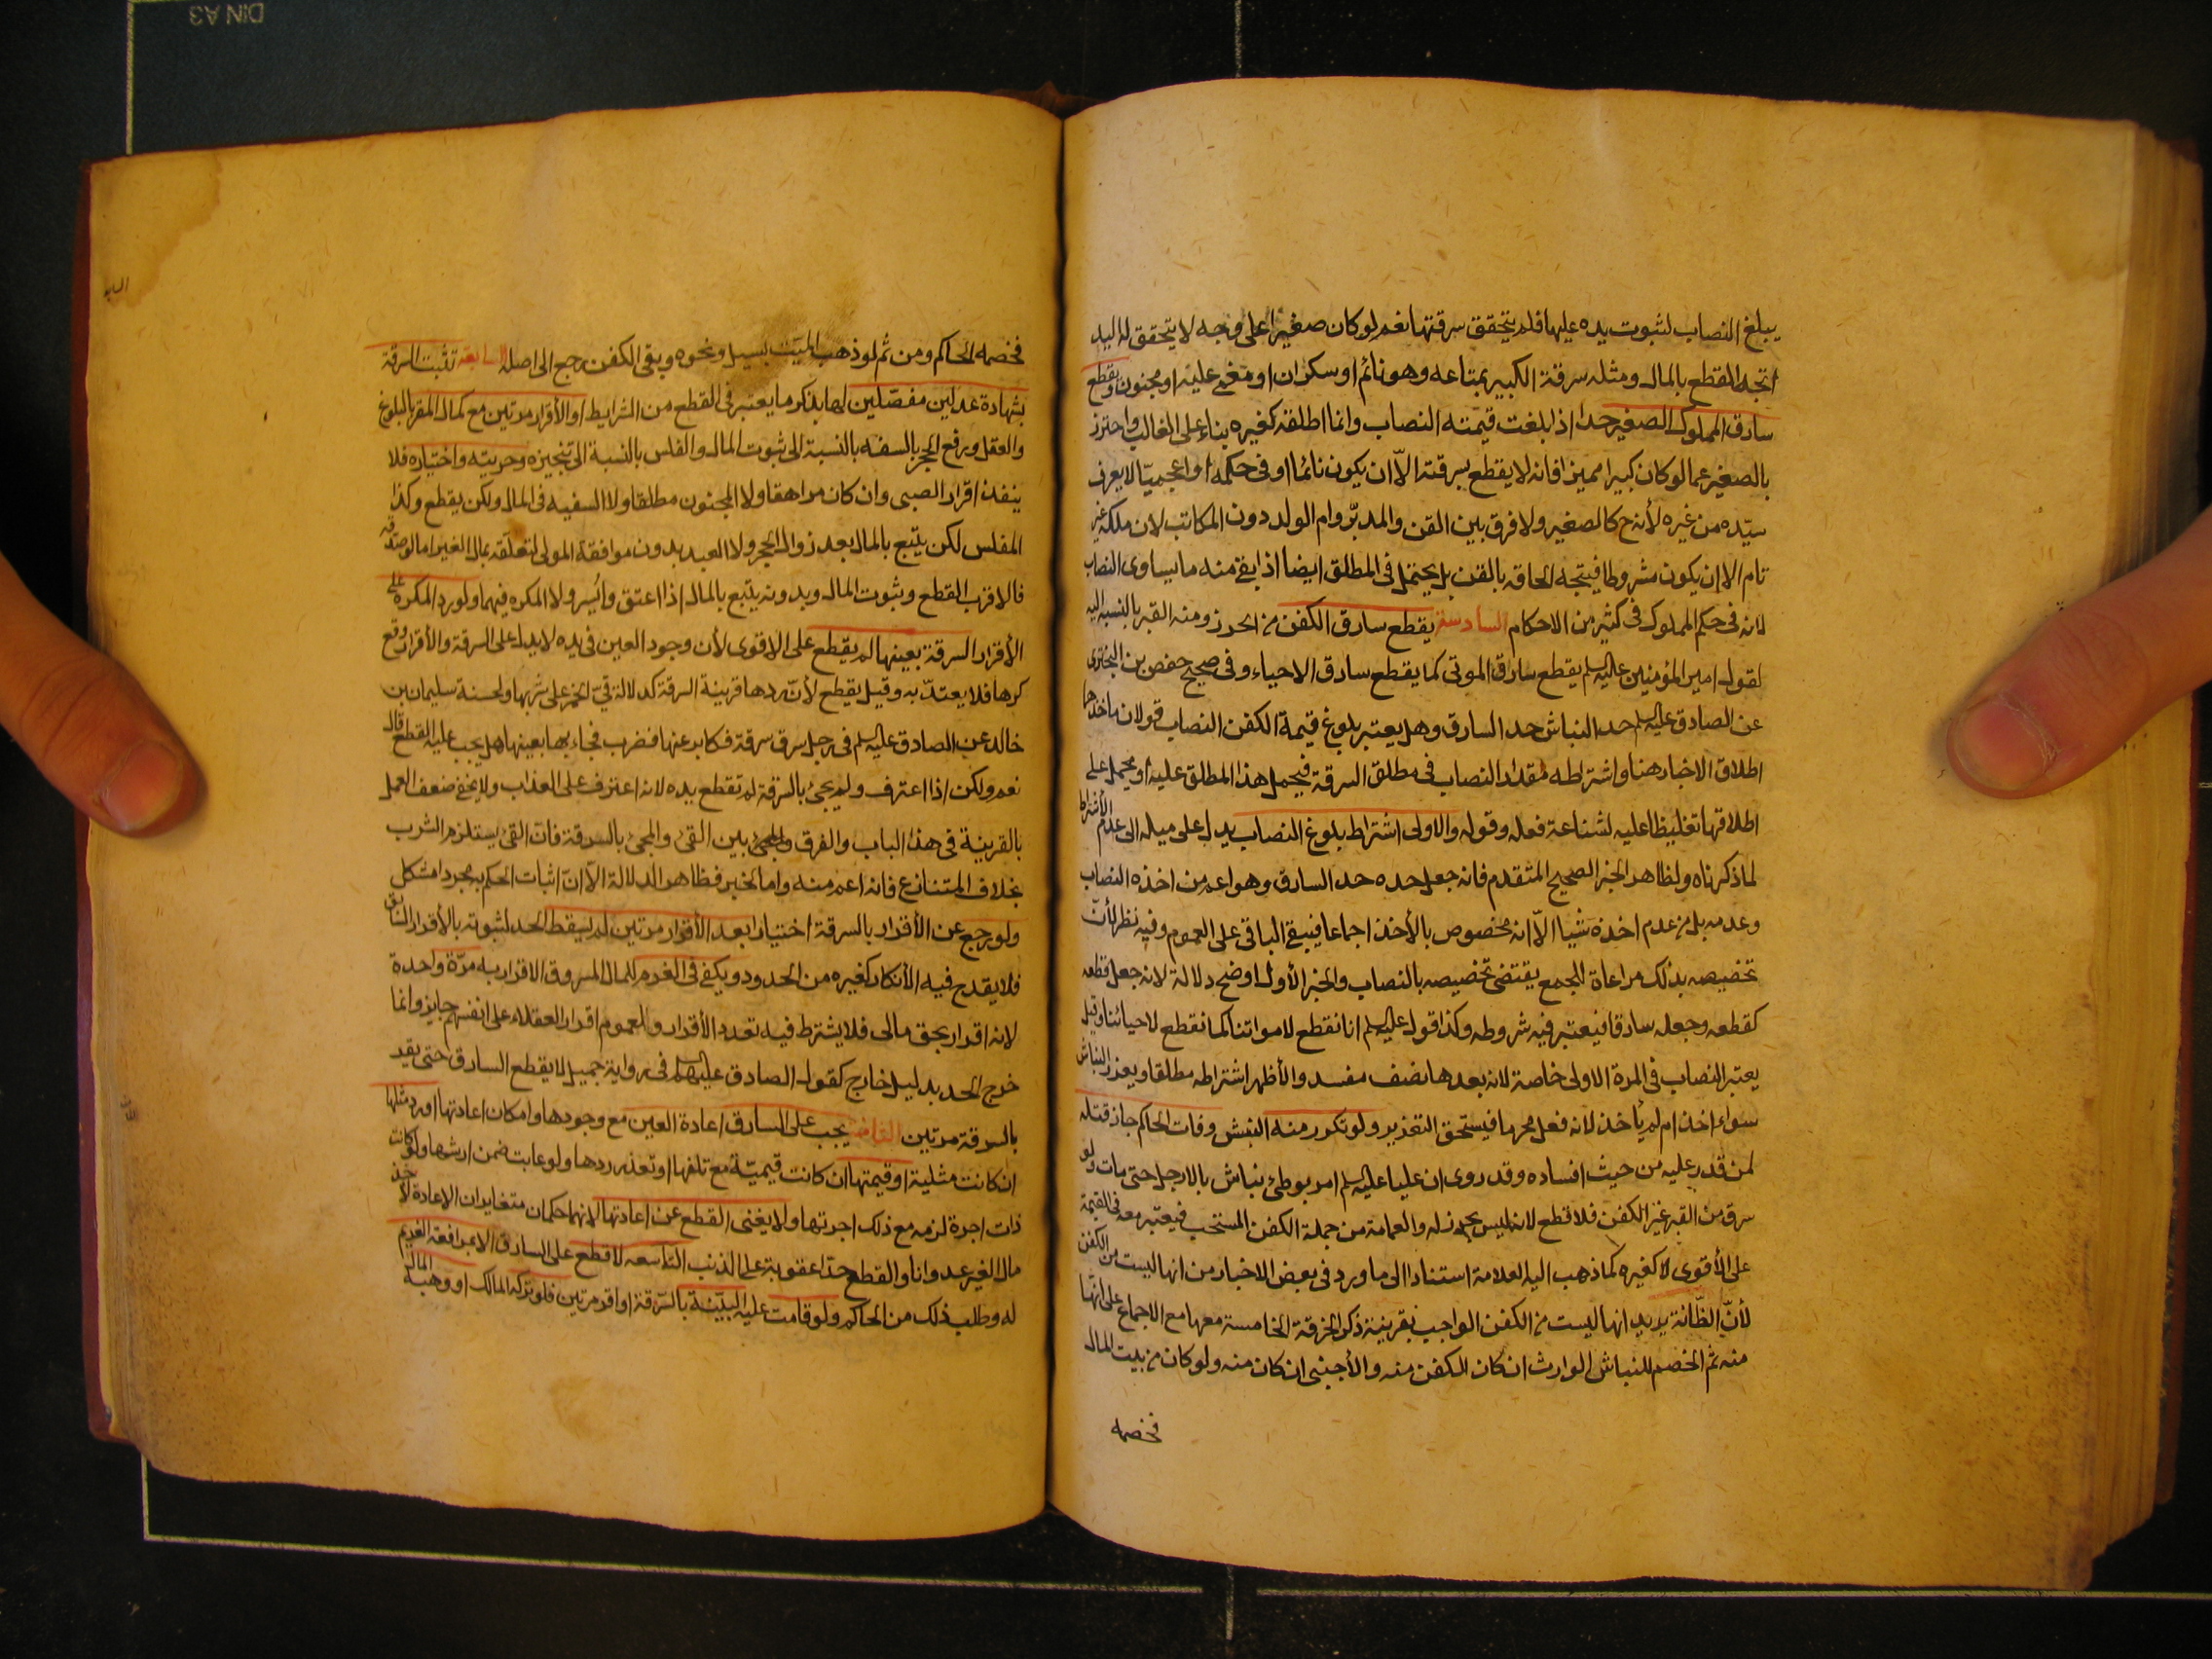 يبلغ النصاب لثبوت يده عليها فلم يتحقق سرقتها نعم لو كان صغيرا على وجه لا يتحقق له اليد
اتجه القطع بالمال ومثله سرقة الكبير بمتاعه وهو نائم او سكران او مغمى عليه او مجنون ويقطع
سارق المملوك الصغير حدا اذا بلغت قيمته النصاب وانما اطلقه كغيره بناء على الغالب واحترز
بالصغير عما لو كان كبيرا مميزا فانه لا يقطع بسرقته الاّ ان يكون نائما او في حكمه او اعجميّا لا يعرف
سيّده من غيره لأنه ح كالصغير ولا فرق بين القن والمدبّر وام الولد دون المكاتب لان ملكه غير
تام الا ان يكون مشروطا فيتجه الحاقه بالقن بل يحتمل في المطلق ايضا اذا بقي منه ما يساوى النصاب
لانه في حكم المملوك في كثير من الاحكام السادسة يقطع سارق الكفن من الحرز ومنه القبر بالنسبة اليه
لقول امير المؤمنين عليه السلم يقطع سارق الموتى كما يقطع سارق الاحياء وفي صحيح حفص بن البخترى
عن الصادق عليه السلم حد النباش حد السارق وهل يعتبر بلوغ قيمة الكفن النصاب قولان ماخذهما
اطلاق الاخبار هنا واشتراطه مقدار النصاب في مطلق السرقة فيحمل هذا المطلق عليه او يحمل على
اطلاقها تغليظا عليه لشناعة فعله وقوله والاولى اشتراط بلوغ النصاب يدل على ميله الى عدم الأشتراط
لما ذكرناه ولظاهر الخبر الصحيح المتقدم فانه جعل حده حد السارق وهو اعم من اخذه النصاب
وعدمه بل من عدم اخذه شيئا الاّ انه مخصوص بالأخذ اجماعا فيبقى الباقي على العموم وفيه نظر لأنّ
تخصيصه بذلك مراعاة للجمع يقتضى تخصيصه بالنصاب والخبر الأول اوضح دلالة لانه جعل قطعه
كقطعه وجعله سارقا فيعتبر فيه شروطه وكذا قوله عليه السلم انا نقطع لامواتنا كما نقطع لاحيائنا وقيل
يعتبر النصاب في المرة الاولى خاصة لانه بعدها نضف مفسد والأظهر اشتراطه مطلقا ويعزر النباش
سواء اخذ ام لم يأخذ لانه فعل محرما فيستحق التعزير ولو تكرر منه النبش وفات الحاكم جاز قتله
لمن قدر عليه من حيث افساده وقد روى ان عليا عليه السلم امر بوطئ نباش بالارجل حتى مات ولو
سرق من القبر غير الكفن فلا قطع لانه ليس بحرز له والعمامة من جملة الكفن المستحب فيعتبر معه في القيمة
على الأقوى لا كغيره كما ذهب اليه العلامة استنادا الى ما ورد في بعض الاخبار من انها ليست من الكفن
لأنّ الظّ انه يريد انها ليست من الكفن الواجب بقرينة ذكر الخرقة الخامسة معها مع الاجماع على انّها
منه ثم الخصم للنباش الوارث ان كان الكفن منه والأجنبى ان كان منه ولو كان من بيت المال
فخصمه
فخصمه الحاكم ومن ثم لو ذهب الميّت بسيل ونحوه وبقى الكفن رجع الى اصله السابعة تثبت السرقة
بشهادة عدلين مفصّلين لها بذكر ما يعتبر في القطع من الشرايط او الأقرار مرتين مع كمال المقر بالبلوغ
والعقل ورفع الحجر بالسفه بالنسبة الى ثبوت المال والفلس بالنسبة الى تنجيزه وحريته واختياره فلا
ينفذ اقرار الصبى وان كان مراهقا ولا المجنون مطلقا ولا السفيه في المال ولكن يقطع وكذا
المفلس لكن يتبع بالمال بعد زوال الحجر ولا العبد بدون موافقة المولى لتعلّقه بمال الغير اما لو صدقه
فالاقرب القطع وثبوت المال وبدونه يتبع بالمال اذا اعتق وايسر ولا المكره فيهما ولو رد المكره على
الأقرار السرقة بعينها لم يقطع على الاقوى لأن وجود العين في يده لا يدل على السرقة والأقرار وقع
كرها فلا يعتدّ به وقيل يقطع لأنّ ردها قرينة السرقة كدلالة قئ الخمر على شربها ولحسنة سليمان بن
خالد عن الصادق عليه السلم في رجل سرق سرقة فكابر عنها فضرب فجاء بها بعينها هل يجب عليه القطع قال
نعم ولكن اذا اعترف ولم يجئ بالسرقة لم تقطع يده لانه اعترف على العذاب ولا يخفى ضعف العمل
بالقرينة في هذا الباب والفرق والمجئ بين القئ والمجئ بالسرقة فان القئ يستلزم الشرب
بخلاف المتنازع فانه اعم منه واما الخبر فظاهر الدلالة الاّ انّ اثبات الحكم به مجردا مشكل
ولو رجع عن الأقرار بالسرقة اختيارا بعد الأقرار مرتين لم يسقط الحد لثبوته بالأقرار السابق
فلا يقدح فيه الأنكار كغيره من الحدود ويكفى في الغرم للمال المسروق الاقرار به مرّة واحدة
لانه اقرار بحق مالى فلا يشترط فيه تعدد الأقرار ولعموم اقرار العقلاء على انفسهم جايز وانما
خرج الحد بدليل خارج كقول الصادق عليه السلم في رواية جميل لا يقطع السارق حتى يقر
بالسرقة مرتين الثامنة يجب على السارق اعادة العين مع وجودها وامكان اعادتها او رد مثلها
ان كانت مثلية او قيمتها ان كانت قيميّة مع تلفها او تعذر ردها ولو عابت ضمن ارشها ولو كانت
ذات اجرة لزمه مع ذلك اجرتها ولا يغنى القطع عن اعادتها لانهما حكمان متغايران الاعادة لأخذ
مال الغير عدوانا والقطع حدّا عقوبة على الذنب التاسعه لا قطع على السارق الا بمرافعة الغريم
له وطلب ذلك من الحاكم ولو قامت عليه البيّنة بالسّرقة او اقر مرتين فلو تركه المالك او وهبه المال